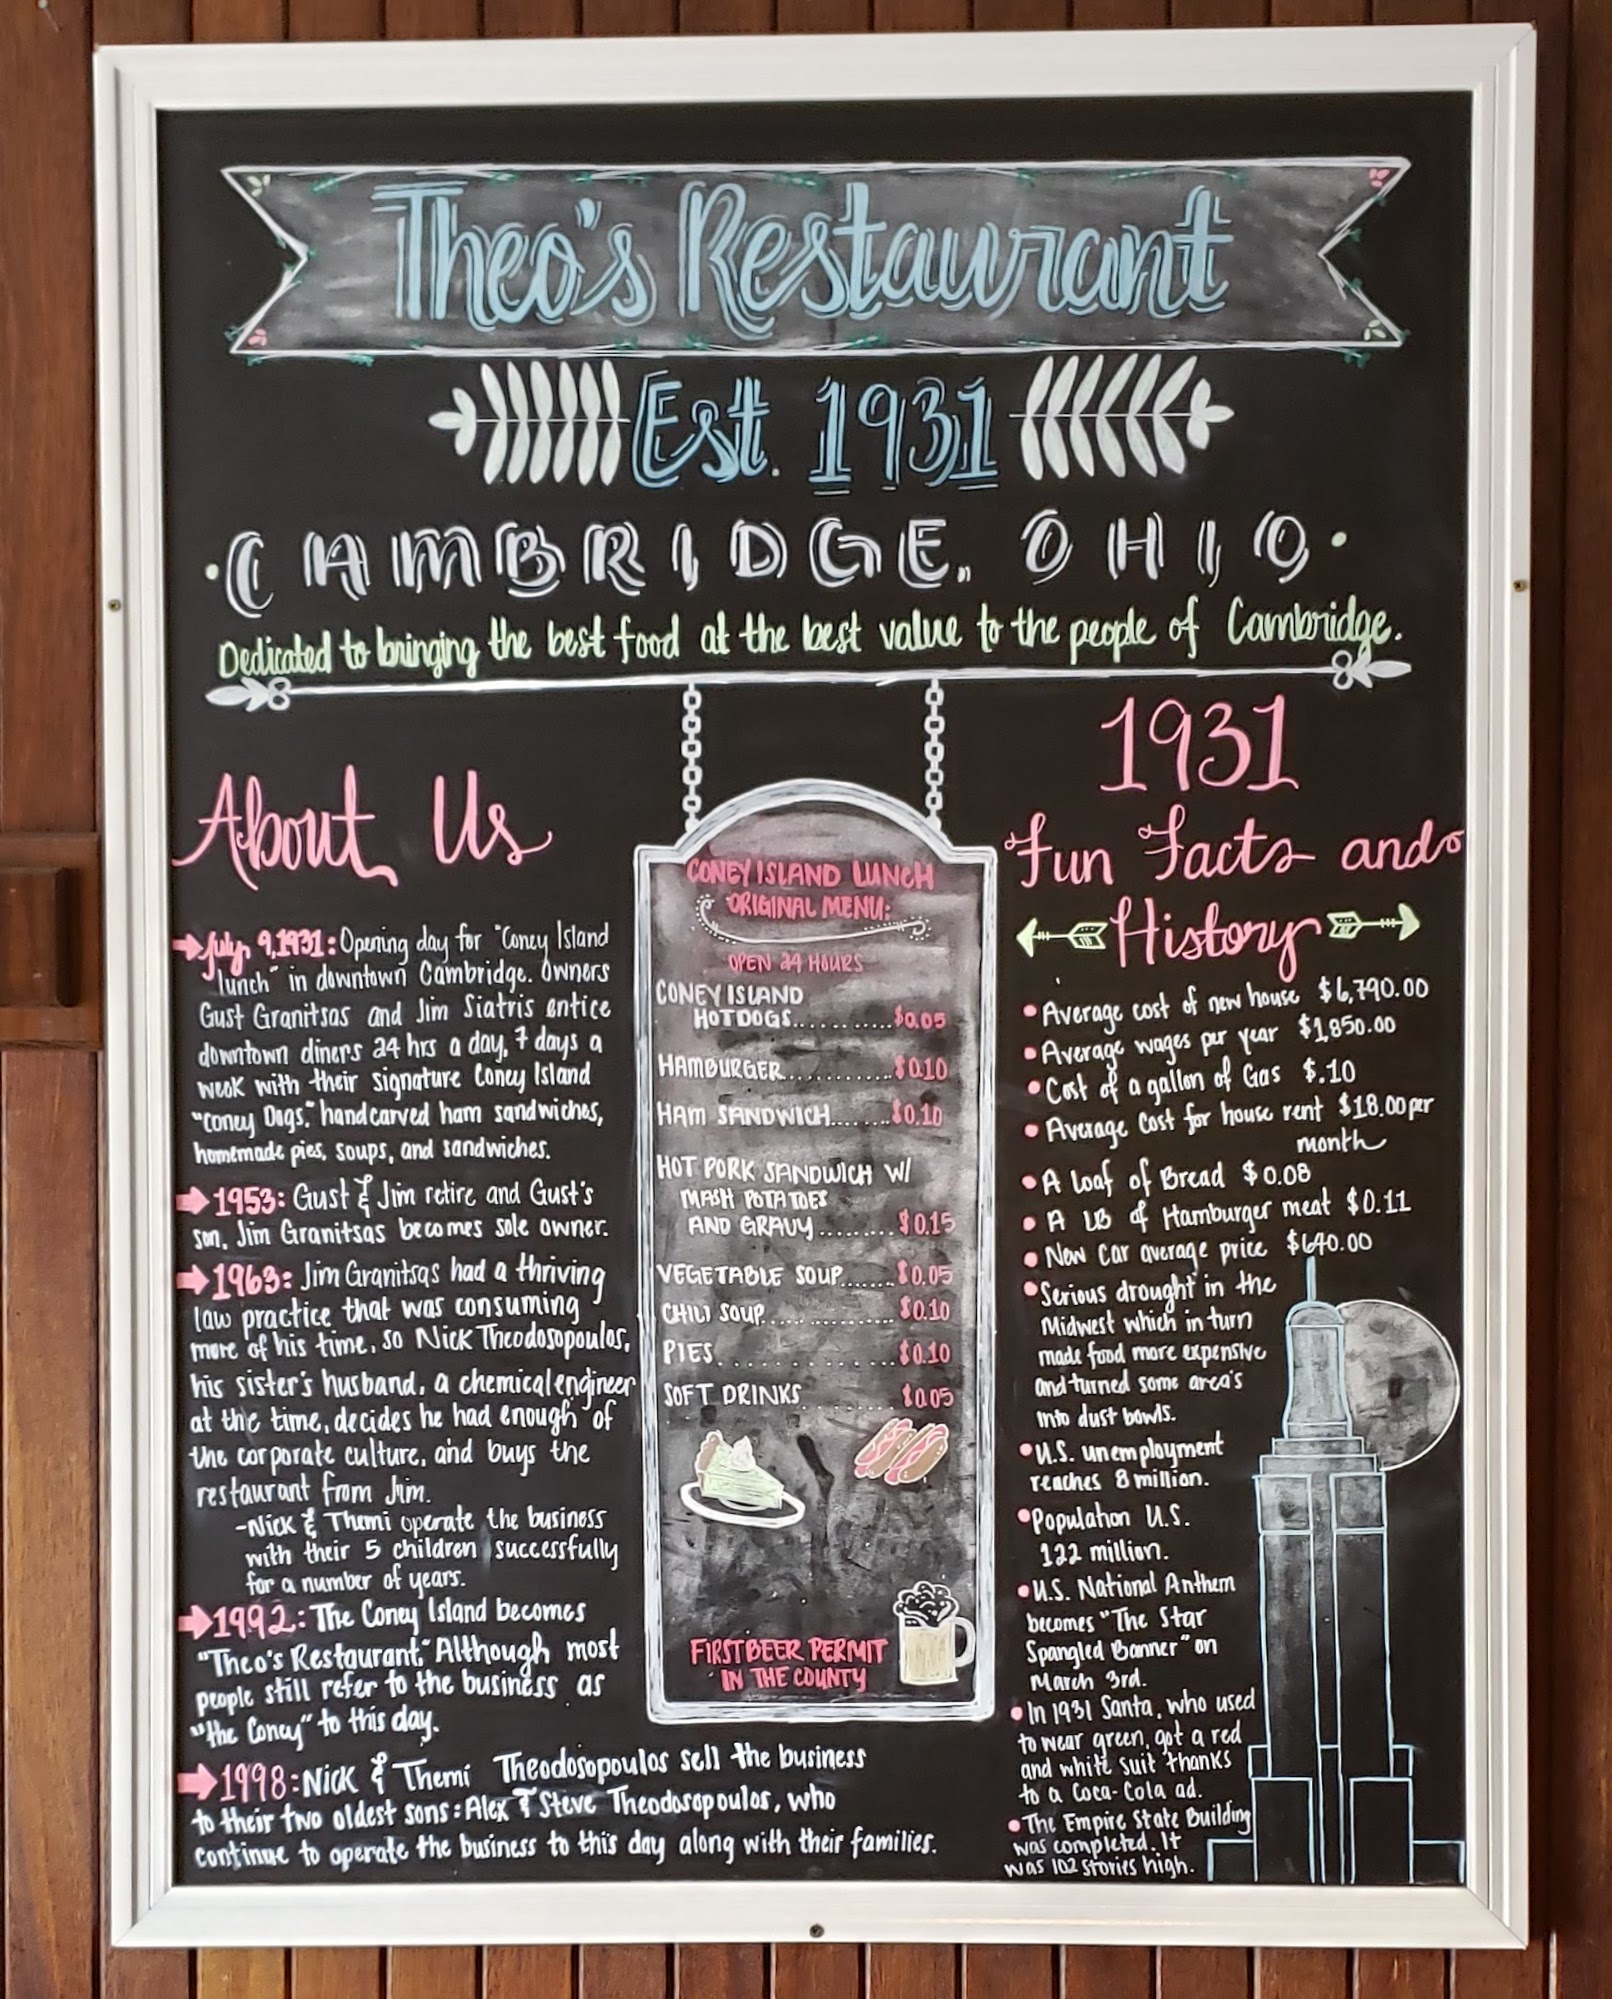 Theo's Restaurant
Est. 1931
CAMBRIDGE, OHIO
Dedicated to bringing the best food at the best value to the people of Cambridge.
About Us
July, 9, 1931: Opening day for "Coney Island
lunch" in downtown Cambridge. Owners
Gust Granitsas and Jim Siatris entice
downtown diners 24 hrs a day, 7 days a
week with their signature Coney Island
"Coney Dogs," handcarved ham sandwiches,
homemade pies, soups, and sandwiches.
1953: Gust & Jim retire and Gust's
son, Jim Granitsas becomes sole owner.
1963: Jim Granitsas had a thriving
law practice that was consuming
more of his time, so Nick Theodosopoulos,
his sister's husband, a chemical engineer
at the time, decides he had enough of
the corporate culture, and buys the
restaurant from Jim.
-Nick & Themi operate the business
with their 5 children successfully
for a number of years.
1992: The Coney Island becomes
"Theo's Restaurant." Although most
people still refer to the business as
"the Coney" to this day.
1998: Nick & Themi Theodosopoulos sell the business
to their two oldest sons: Alex & Steve Theodosopoulos, who
continue to operate the business to this day along with their families.
CONEY ISLAND LUNCH
ORIGINAL MENU:
OPEN 24 HOURS
CONEY ISLAND
HOTDOGS...........$0.05
HAMBURGER...........$0.10
HAM SANDWICH.......$0.10
HOT PORK SANDWICH W/
MASH POTATOES
AND GRAVY.........$0.15
VEGETABLE SOUP......$0.05
CHILI SOUP..............$0.10
PIES..................$0.10
SOFT DRINKS..........$0.05
FIRST BEER PERMIT
IN THE COUNTY
1931
Fun Facts and
History
• Average cost of new house $6,790.00
• Average wages per year $1,850.00
• Cost of a gallon of Gas $.10
• Average Cost for house rent $18.00 per
month
• A loaf of Bread $0.08
• A LB of Hamburger meat $0.11
• New Car average price $640.00
• Serious drought in the
Midwest which in turn
made food more expensive
and turned some area's
into dust bowls.
• U.S. unemployment
reaches 8 million.
• Population U.S.
122 million.
• U.S. National Anthem
becomes "The Star
Spangled Banner" on
March 3rd.
• In 1931 Santa, who used
to wear green, got a red
and white suit thanks
to a Coca-Cola ad.
• The Empire State Building
was completed. It
was 102 stories high.